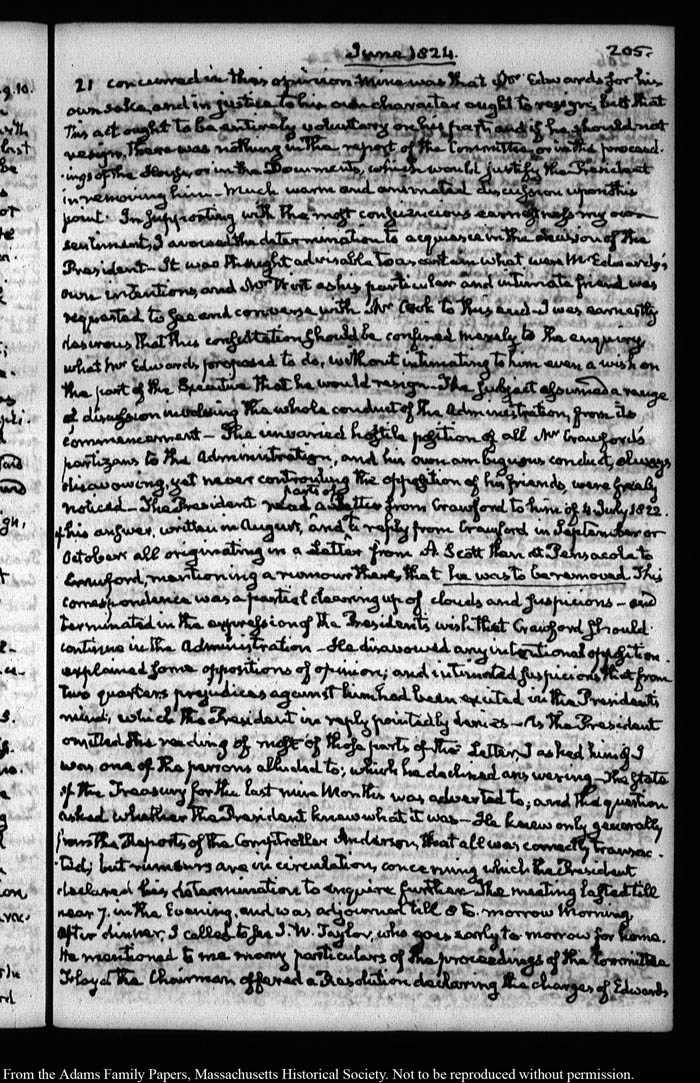 June 1824.
205.
21 concurred in this opinion. Mine was that Mr Edwards for his
own sake, and in justice to his own character ought to resign, but that
this act ought to be entirely voluntary on his part, and if he should not
resign, there was nothing in the report of the Committee, or in the proceed-
ings of the House, or in the Documents, which would justify the President
in removing him—Much warm and animated discussion upon this
point. In supporting with the most earnestness my own
sentiments, I avowed the determination to acquiesce in the decision of the
President—It was thought advisable to ascertain what were Mr Edwards's
own intentions, and Mr Wirt as his particular and intimate friend was
requested to see and converse with Mr Cook to this end—I was earnestly
desirous that this consultation should be confined merely to the enquiry
what Mr Edwards proposed to do, without intimating to him even a wish on
the part of the Executive that he would resign—The subject assumed a range
of discussion involving the whole conduct of the Administration, from its
commencement—The unvaried hostile position of all Mr Crawford's
partizans to the Administration, and his own ambiguous conduct, always
disavowing, yet never controuling the opposition of his friends, were freely
noticed—The President read parts of a Letter from Crawford to him of 4 July 1822.
of his answer, written in August, and reply from Crawford in September or
October all originating in a Letter from A. Scott then at Pensacola to
Crawford, mentioning a rumour there, that he was to be removed. This
correspondence was a partial clearing up of clouds and suspicions—and
terminated in the expression of the Presidents wish that Crawford should
continue in the Administration—He disavowed any intentional opposition.
explained some oppositions of opinion; and intimated suspicions that from
two quarters prejudices against him had been excited in the President's
mind, which the President in reply pointedly denies—As the President
omitted the reading of most of those parts of the Letter, I asked him if I
was one of the persons alluded to; which he declined answering—The State
of the Treasury for the last nine Months was adverted to; and the question
asked whether the President knew what it was—He knew only generally
from the Reports of the Comptroller Anderson, that all was correctly transac-
ted; but rumours are in circulation, concerning which the President
declared his determination to enquire further—The meeting lasted till
near 7. in the Evening, and was adjourned till 8 to-morrow Morning
After dinner, I called to see J. W. Taylor, who goes early to morrow for home.
He mentioned to me many particulars of the proceedings of the Committee
Floyd the Chairman offered a Resolution declaring the charges of Edwards
From the Adams Family Papers, Massachusetts Historical Society. Not to be reproduced without permission.